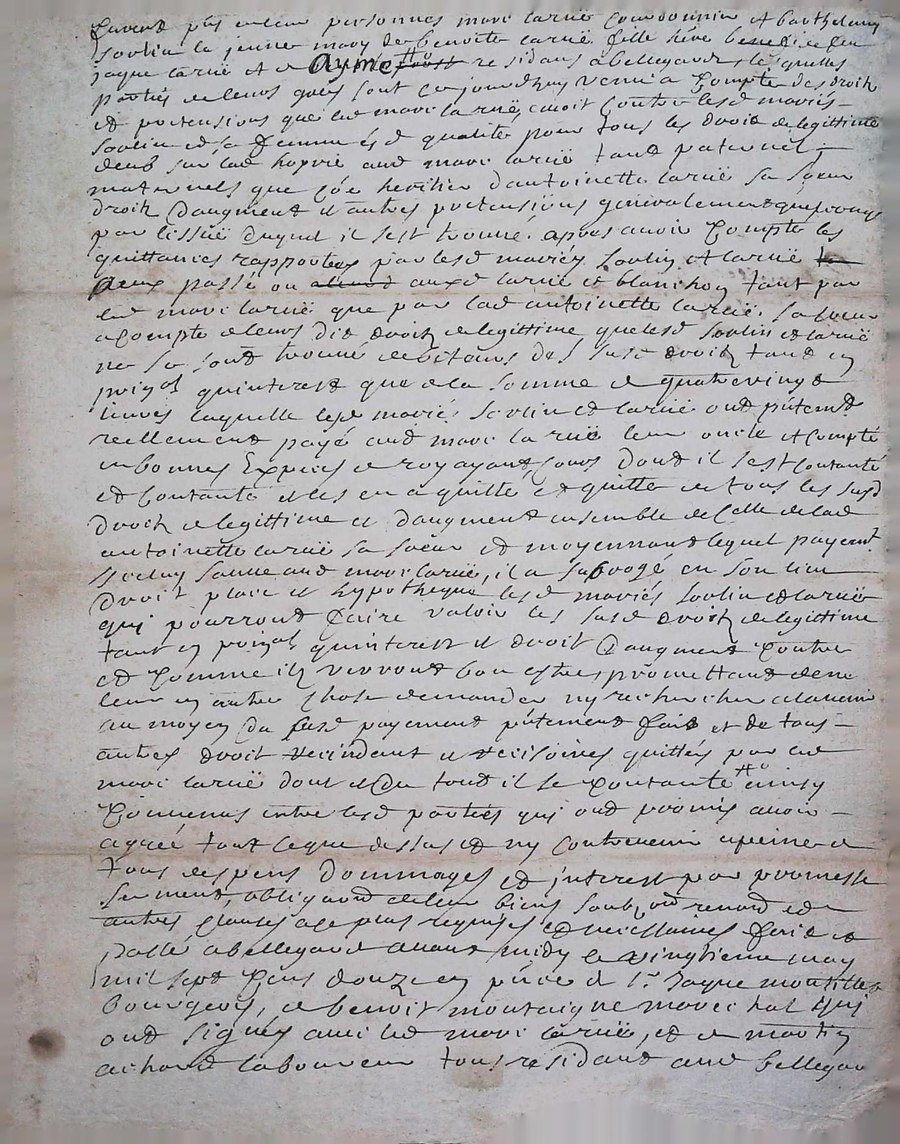 furent pnts en leur personnes marc larue Courdonnier et barthelemy
soulin le jeune mary de benoite larue fille here benef de feu
jaque larue et de Ayme residans a bellegarde, lesquelles
parties de leurs gres sont cejourdhuy venu a Compte des droits
et pretensions que led marc larue avoit Contre lesd mariés
soulin et sa femme esd qualité pour tous les droit de legittime
deub sur lad hoyrie aud marc larue tant paternel
maternels que Côe heritier dantoinette larue sa sœur
droits daugment et autres pretensions generalement quelconque
par lissue duquel il sest trouvé apres avoir Compté les
quittances rapportées par lesd mariez soulin et larue
passé ou auxd larue et blanchon tant par
led marc larue que par lad antoinette larue sa sœur
a compte de leurs dit droits de legittime que lesd soulin et larue
ne se sont trouvé debiteurs des susd droits tant en
prinpal quinterest que de la somme de quatre vingt
livres laquelle lesd mariés soulin et larue ont pntemt
reellement payé aud marc larue leur oncle et Compté
en bonnes Expeces de roy ayant Cours dont il sest Contanté
et Contante et les en a quitté et quitte de tous les susd
droits de legittime et daugment ensemble de Celle de lad
antoinette larue sa sœur et moyennant lequel payemt
led marc larue, il a subrogé en son lieu
droit place et hypotheque lesd mariés soulin et larue
qui pourront faire valoir les susd droits de legittime
tant en prinpal quinterest et droit daugment Contre
et Comme ils verront bon estre, promettant de ne
leur en autre Chose demander ny rechercher a ladvenir
au moyen du susd payement pntement fait et de tous
autres droit rescindant et rescisoires quittes par led
marc larue dont et du tout il se Contante ainsy
Convenus entre lesd parties qui ont promis avoir
agreé tout Ceque dessus et ny Contrevenir a peine de
tous despens dommages et interest par promesse
serment, obligaõn de leur biens soubz õn renoñ et
autres Clauses a ce plus requises et necessaires fait et
passé a bellegarde avant midy le vingtieme may
mil sept Cens douze en pnce de sr Jaque
bourgeois, et benoit montaigne marechal qui
ont signés avec led marc larue, et de martin
achard laboureur tous residant aud bellegarde